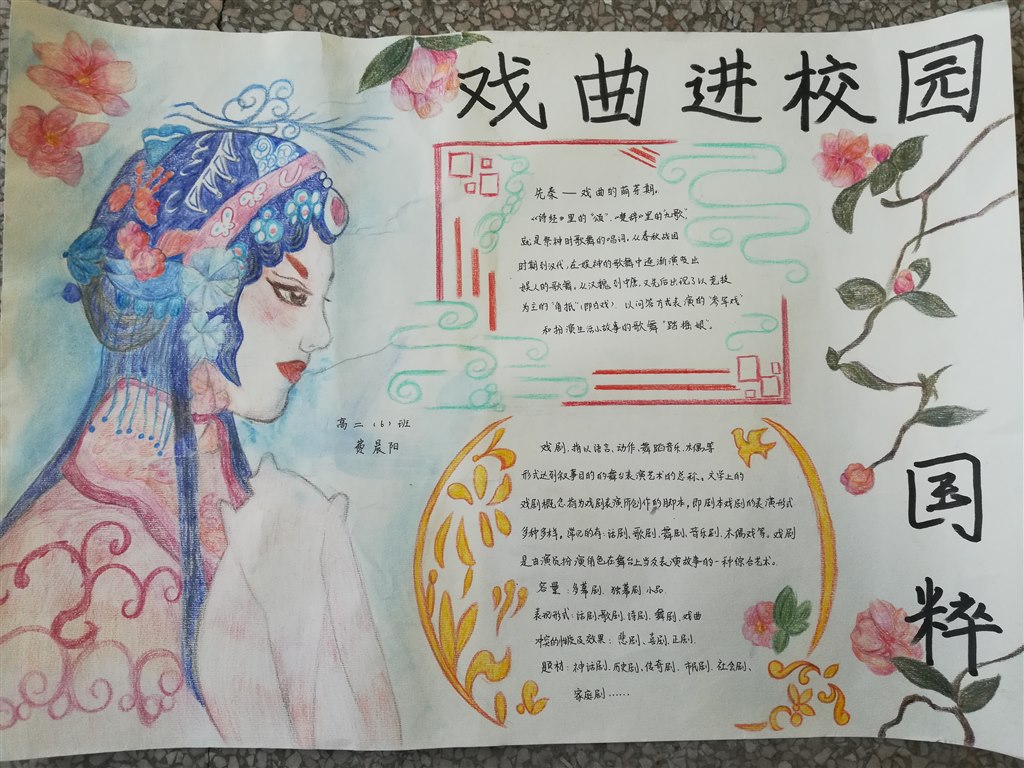 戏曲进校园
国粹
先秦 — 戏曲的萌芽期,
《诗经》里的"颂",《楚辞》里的"九歌",
就是祭神时歌舞的唱词,从春秋战国
时期到汉代,在娱神的歌舞中逐渐演变出
娱人的歌舞,从汉魏到中唐,又先后出现了以竞技
为主的"角抵"(即百戏)、以问答方式表演的"参军戏"
和扮演生活小故事的歌舞"踏摇娘"。
高二(6)班
费晨阳
戏剧,指以语言、动作、舞蹈音乐、木偶等
形式达到叙事目的的舞台表演艺术的总称。文学上的
戏剧概念指为戏剧表演所创作的脚本,即剧本戏剧的表演形式
多种多样,常见的有:话剧、歌剧、舞剧、音乐剧、木偶戏等。戏剧
是由演员扮演角色在舞台上当众表演故事的一种综合艺术。
容量:多幕剧、独幕剧、小品.
表现形式:话剧、歌剧、诗剧、舞剧、戏曲
冲突的性质及效果:悲剧、喜剧、正剧.
题材:神话剧、历史剧、传奇剧、市民剧、社会剧、
家庭剧……